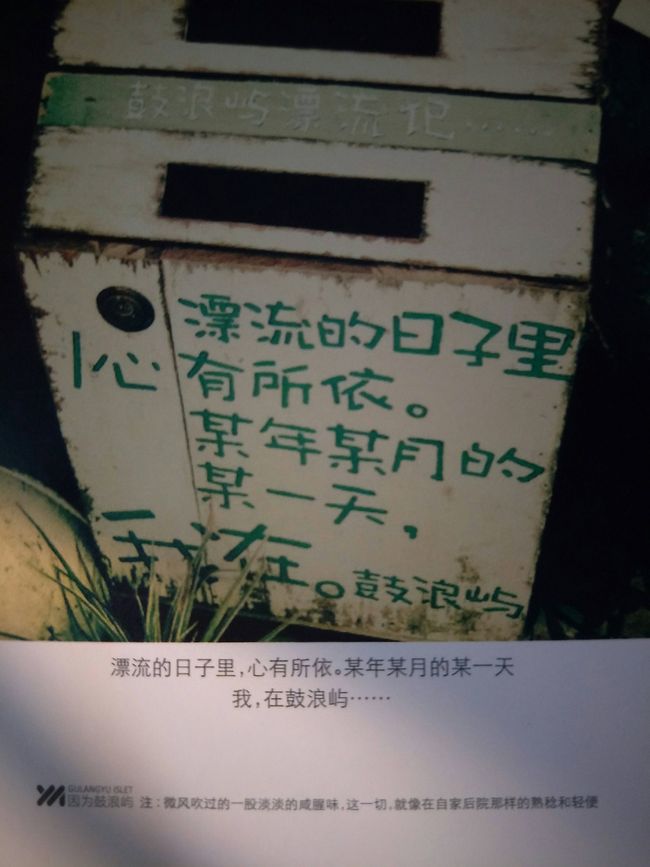 鼓浪屿漂流记……
漂流的日子里
心有所依。
某年某月的
某一天,
我在。鼓浪屿
漂流的日子里,心有所依。某年某月的某一天
我,在鼓浪屿……
GULANGYU ISLET
因为鼓浪屿 注:微风吹过的一股淡淡的咸腥味,这一切,就像在自家后院那样的熟稔和轻便